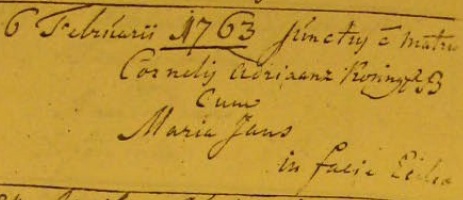 6 Februarii 1763 Junctus ē matri
Cornelij Adriaanz
Cum
Maria Jans
in facie Eccles